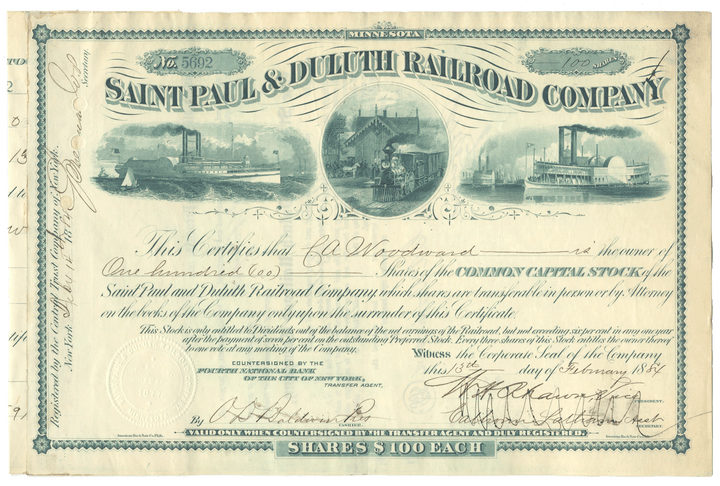 MINNESOTA
No. 5692
100 SHARES
SAINT PAUL & DULUTH RAILROAD COMPANY
This Certifies that C A Woodward is the owner of
One hundred (100) Shares of the COMMON CAPITAL STOCK of the
Saint Paul and Duluth Railroad Company, which shares are transferable in person or by Attorney
on the books of the Company only upon the surrender of this Certificate.
This Stock is only entitled to Dividends out of the balance of the net earnings of the Railroad, but not exceeding six per cent in any one year
after the payment of seven per cent on the outstanding Preferred Stock. Every three shares of this Stock entitles the owner thereof
to one vote at any meeting of the Company.
Witness the Corporate Seal of the Company
this 13th day of February 1884
COUNTERSIGNED BY THE
FOURTH NATIONAL BANK
OF THE CITY OF NEW YORK,
TRANSFER AGENT,
By O D Baldwin
CASHIER.
PRESIDENT.
SECRETARY.
VALID ONLY WHEN COUNTERSIGNED BY THE TRANSFER AGENT AND DULY REGISTERED.
American Bank Note Co. Phila.
American Bank Note Co. Phila.
SHARES $100 EACH
Registered by the Central Trust Company of New York.
New York
Secretary